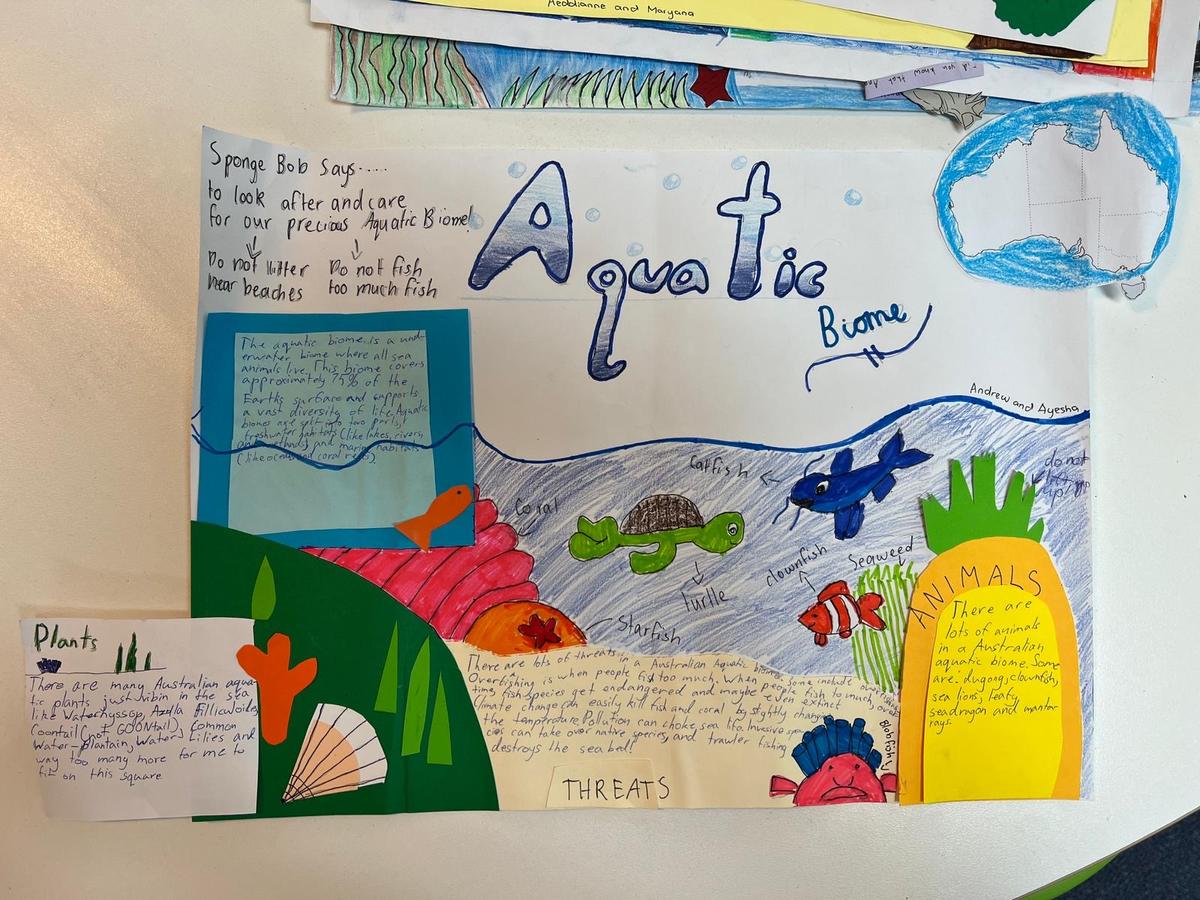 Meddianne and Maryana
Did you know that
Sponge Bob Says......
to look after and care
for our precious Aquatic Biome!
Do not litter
near beaches
Do not fish
too much fish
Aquatic
Biome
Andrew and Ayesha
The aquatic biome is a und-
erwater biome where all sea
animals live. This biome covers
approximately 75% of the
Earths surface and supports
a vast diversity of life. Aquatic
biomes are split into two parts,
freshwater habitats (like lakes, rivers,
and wetlands) and marine habitats
(like oceans and coral reefs).
Catfish
Coral
turtle
clownfish
Seaweed
Starfish
do not
lift up
up!
ANIMALS
There are
lots of animals
in a Australian
aquatic biome. Some
are: dugong, clownfish,
sea lions, leafy
seadragon and manta
rays.
Plants
There are many Australian aqua-
tic plants just vibin in the sea
like Waterhyssop, Azolla Filliculoides,
Coontail (not GOONtail), Common
Water-plantain, Water Lilies and
way too many more for me to
fit on this square
There are lots of threats in a Australian Aquatic biome, some include overfishing.
Overfishing is when people fish too much. When people fish to much, over
time, fish species get endangered and maybe even extinct.
Climate change can easily kill fish and coral by slightly changing
the temprature. Pollution can choke sea life. Invasive spe-
cies can take over native species, and trawler fishing
destroys the sea bed!
Blobfish
THREATS